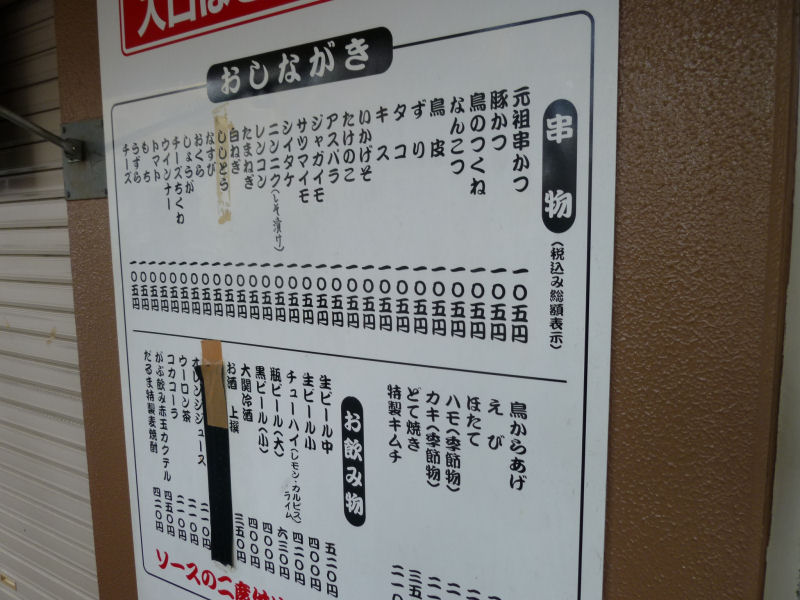 入口は
おしながき
串物
(税込み総額表示)
元祖串かつ 一〇五円
豚かつ 一〇五円
鳥のつくね 一〇五円
なんこつ 一〇五円
鳥皮 一〇五円
ずり 一〇五円
タコ 一〇五円
キス 一〇五円
いかげそ 一〇五円
たけのこ 一〇五円
アスパラ 一〇五円
ジャガイモ 一〇五円
サツマイモ 一〇五円
シイタケ 一〇五円
ニンニク(しそ漬け) 一〇五円
レンコン 一〇五円
たまねぎ 一〇五円
白ねぎ 一〇五円
ししとう 一〇五円
なすび 一〇五円
おくら 一〇五円
しょうが 一〇五円
チーズちくわ 一〇五円
ウインナー 一〇五円
トマト 一〇五円
もち 一〇五円
うずら 一〇五円
チーズ 一〇五円
鳥からあげ
えび
ほたて
ハモ(季節物)
カキ(季節物)
どて焼き
特製キムチ
お飲み物
生ビール中 五二〇円
生ビール小 四〇〇円
チューハイ(レモン・カルピス・ライム) 四二〇円
瓶ビール(大) 六三〇円
黒ビール(小) 四〇〇円
大関冷酒 四〇〇円
お酒 上撰 三五〇円
オレンジジュース 二一〇円
ウーロン茶 二一〇円
コカコーラ 二一〇円
がぶ飲み赤玉カクテル 四五〇円
だるま特製麦焼酎 四二〇円
ソースの二度